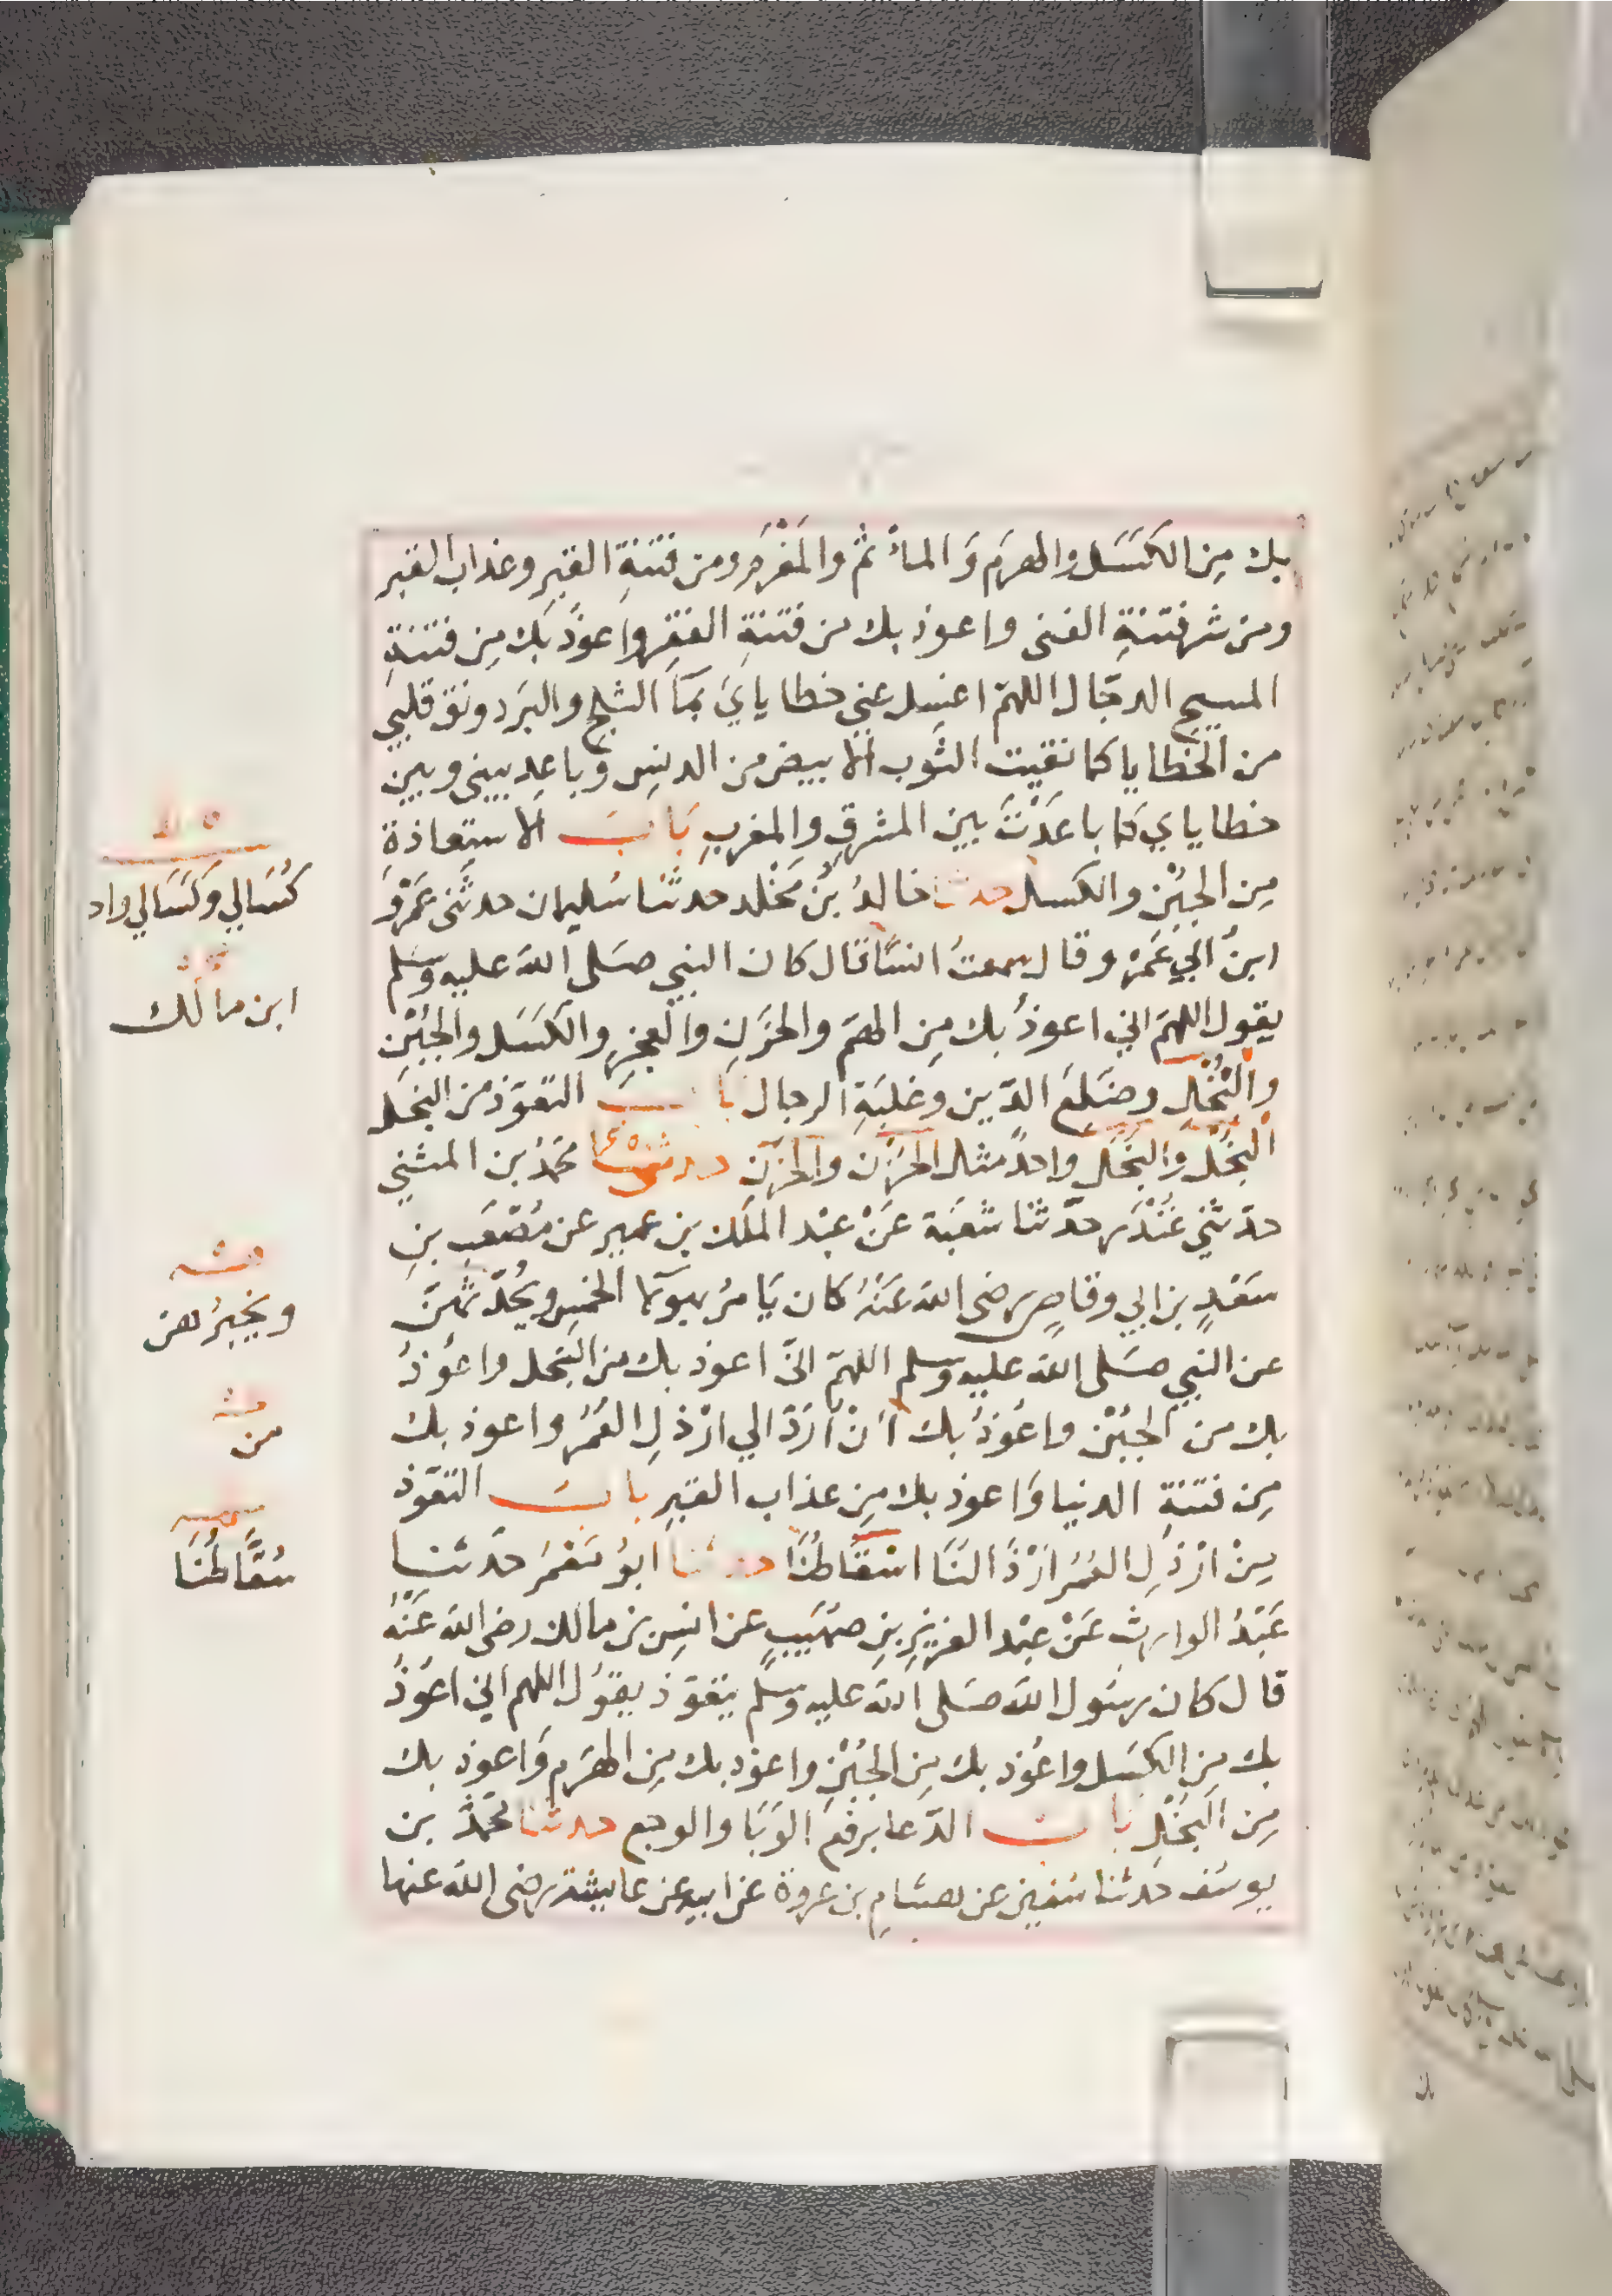 بك مِن الكَسَل والهرَم وَالمأثم والمَغْرَم ومن فتنةِ القبرِ وعذاب القبر
ومن شر فتنةِ الغنى واعوذ بك من فتنةِ الفقرِ واعوذ بك مِن فتنةِ
المسيح الدجّال اللهمّ اغسِل عني خطاياي بمآ الثلج والبَرد ونق قلبي
من الخطايا كما نقيت الثوب الابيض من الدنسِ وباعِد بيني وبين
خطاياي كما باعَدْتَ بين المشرقِ والمغربِ بَابُ الاستعاذة
مِن الجُبْن والكسل حدثنا خالدُ بْنُ مَخْلد حدثنا سُليمان حدثني عَمْرُو
ابنُ ابي عَمْرٍو قال سمعتُ انسًا قال كان النبي صَلى الله عليه وسلم
يقول اللهمّ اني اعوذُ بك مِن الهمّ والحَزَنِ والعجزِ والكَسَل والجُبْن
والبُخْلِ وضَلَعِ الدّين وغلبَةِ الرجال بابُ التعَوّذ من البخل
البُخْل والبَخَل واحدٌ مثل الحُزْن والحَزَن حدثنا محمّدُ بن المثنى
حدّثني غُنْدَر حدّثنا شعْبَة عَنْ عبْد الملك بن عمير عن مُصْعَب بنِ
سَعْدِ بن ابي وقاصٍ رضى الله عَنْهُ كان يَامرُ بهؤلآ الخمسِ ويُحدّثهنّ
عن النبي صَلى الله عليه وسلم اللهمّ انّي اعوذ بك من البخل واعُوذُ
بك من الجُبْن واعُوذُ بك اَنْ اُرَدّ الي ارْذلِ العُمُرِ واعوذ بك
مِن فتنةِ الدنيا وَاعوذ بك مِن عذاب القبرِ بابُ التعَوّذ
مِنْ ارْذلِ العُمُر ارَذالنَا اسْقاطُنَا حدثنا ابوُ مَعْمَر حدثنا
عَبْدُ الوارث عَنْ عبْد العزيزِ بنِ صُهَيبٍ عن انسِ بن مالك رضى الله عَنْهُ
قال كان رسُول الله صَلى الله عليه وسلم يتعَوّذ يقوُل اللهم اني اعُوذُ
بك مِن الكسَل واعُوذ بك مِن الجُبْنِ واعوذ بك مِن الهَرَمِ وَاعوذ بك
مِن البُخْلِ بابُ الدّعا برفعِ الوَبَا والوجع حدثنا محمّدُ بن
يوسُف حدثنا سُفين عن هشامِ بن عروة عن ابيه عن عايشة رضى الله عنها
كُسَالي وَكَسَالي واحد
ابن مالك
ويخبرُ بهن
من
سُقَّاطُنَا